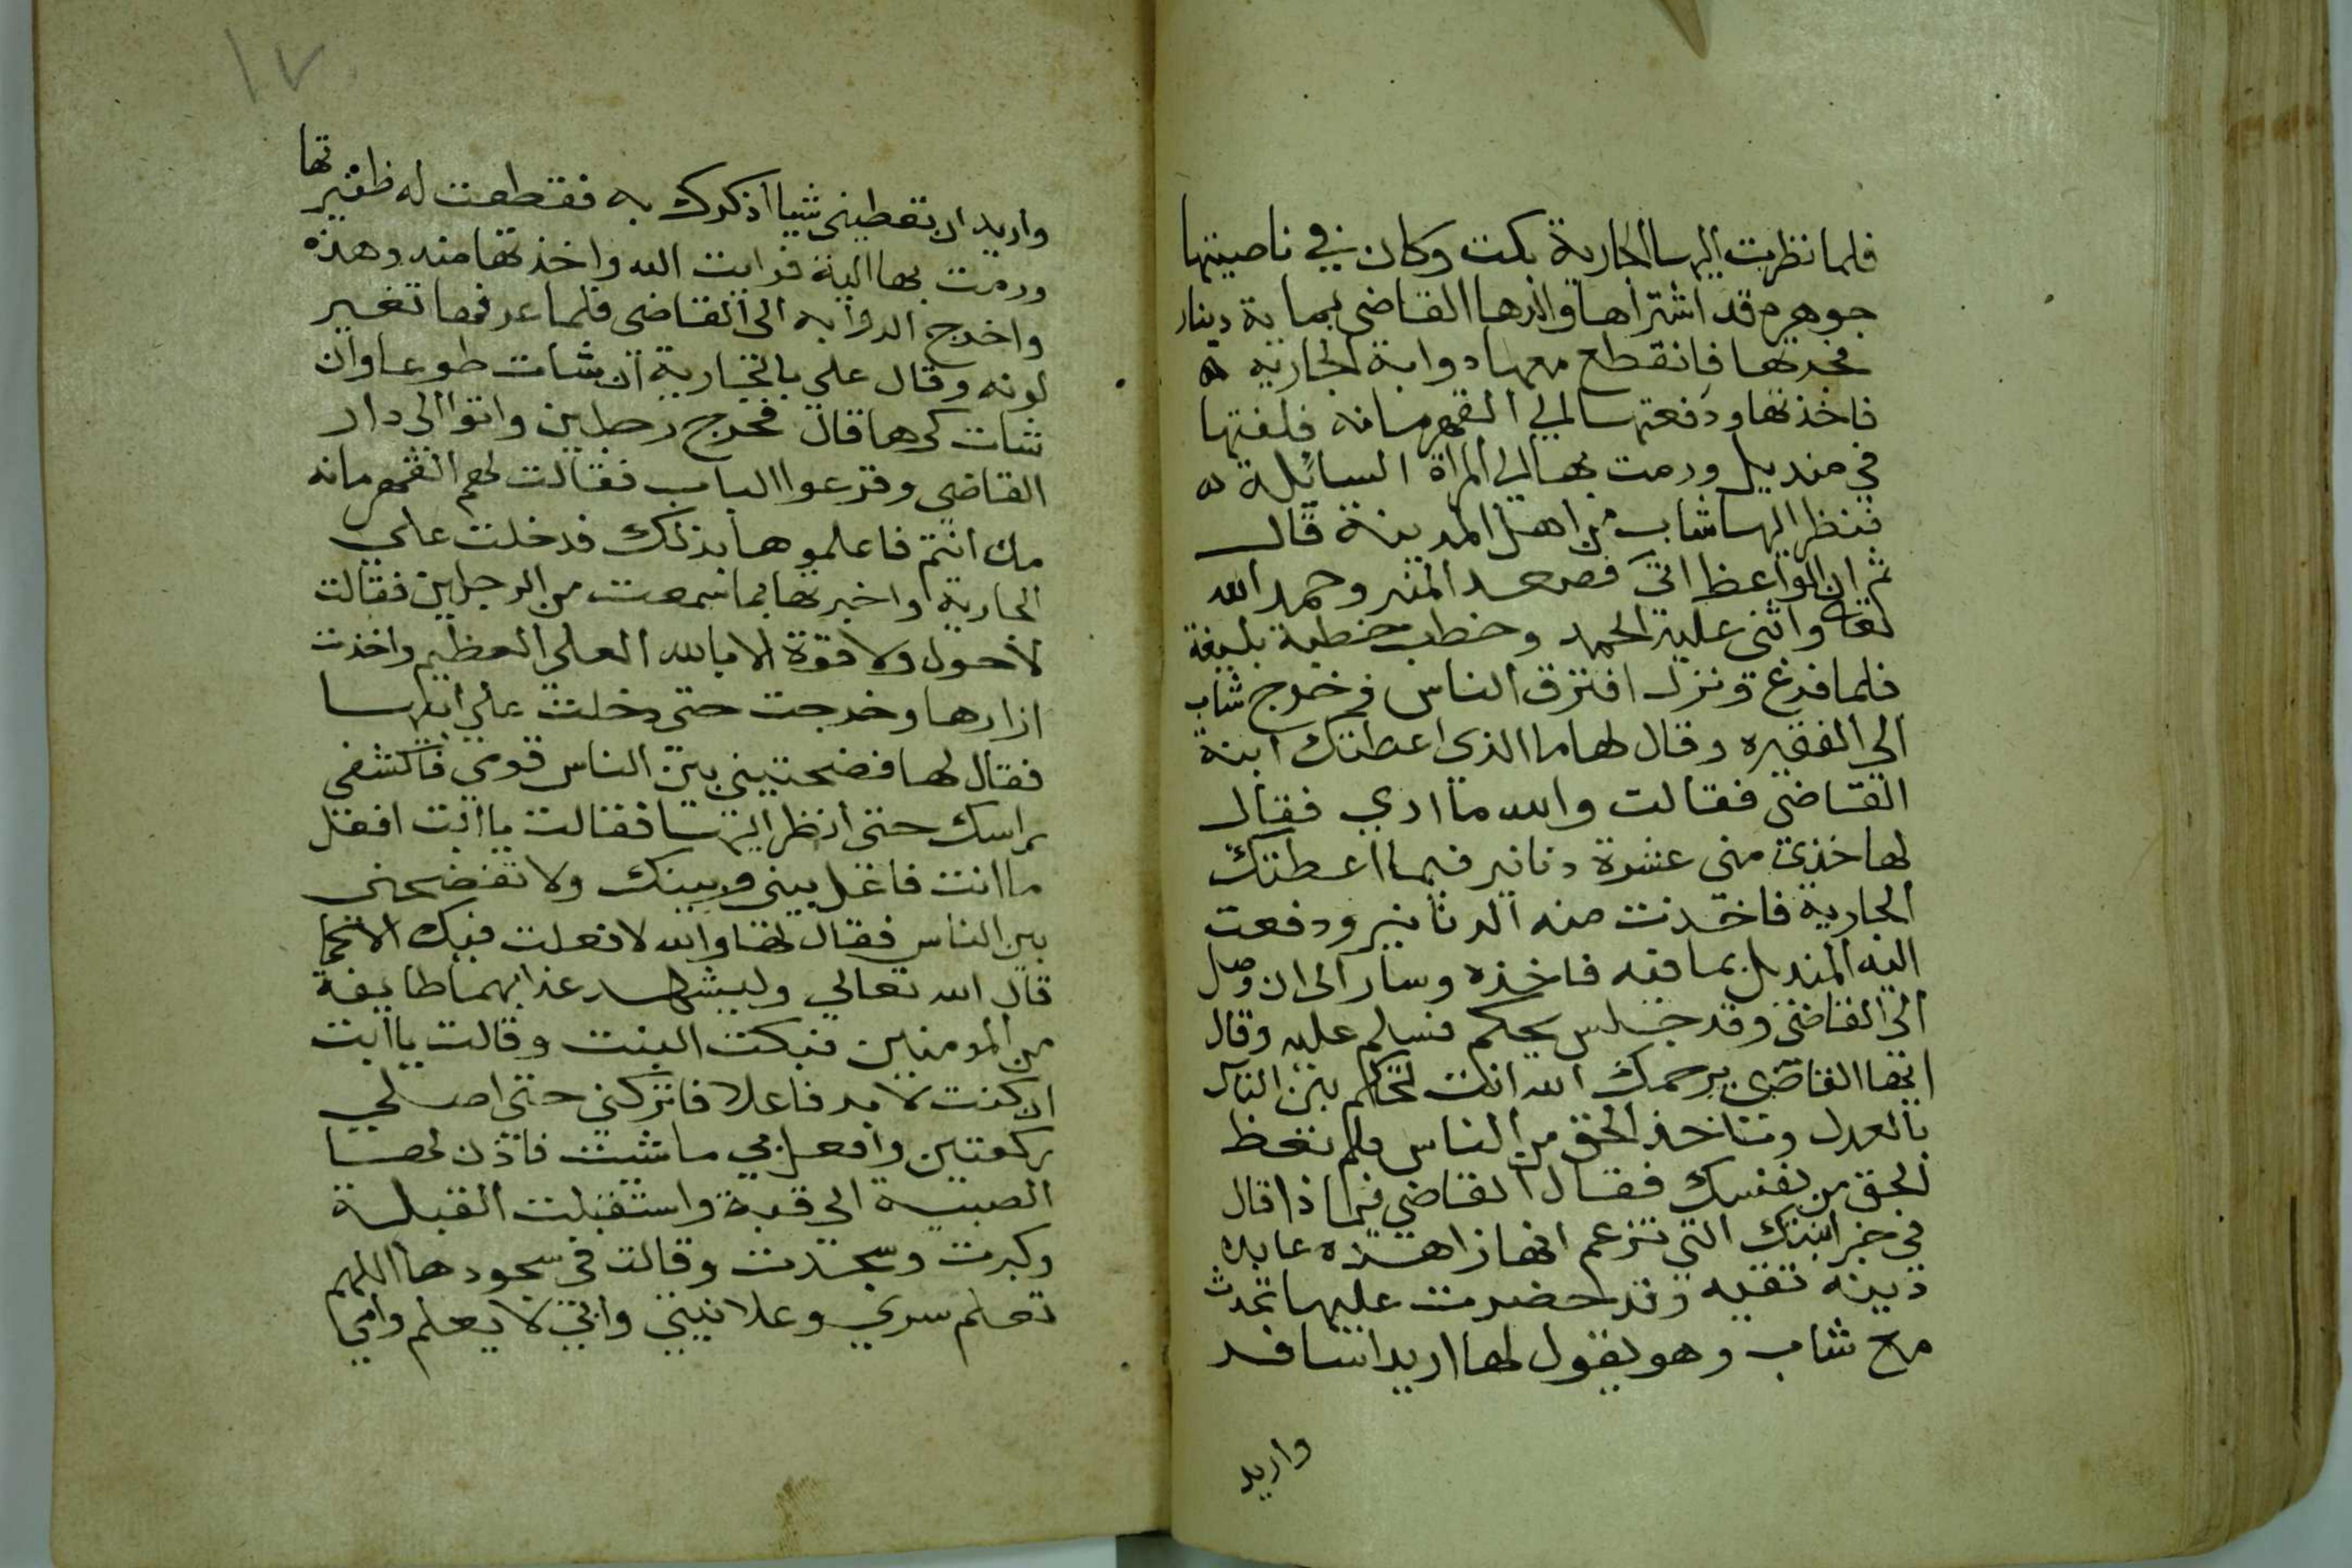 فلما نظرت اليها الجارية بكت وكان في ناصيتها
جوهره قد اشتراها والدها القاضي بماية دينار
فجدتها فانقطع معها دوابة الجاريه ه
فاخذتها ودفعتها الي القهرمانه فلفتها
في منديل ورمت بها الي المراة السائلة ه
فنظر اليها شاب من اهل المدينة قال
ثم ان الواعظ اتى فصعد المنبر وحمد الله
تعالى واثنى عليه الحمد وخطب خطبة بليغة
فلما فرغ ونزل افترق الناس فخرج شاب
الي الفقيره وقال لها ما الذي اعطتك ابنة
القاضي فقالت والله ما ادري فقال
لها خذي مني عشرة دنانير فيما اعطتك
الجارية فاخذت منه الدنانير ودفعت
اليه المنديل بما فيه فاخذه وسار الى ان وصل
الى القاضي وقد جلس يحكم فسلم عليه وقال
ايها القاضي يرحمك الله انت تحكم بين الناس
بالعدل وتاخذ الحق من الناس ولم تعط
الحق من نفسك فقال القاضي فيماذا قال
في خبر ابنتك التي تزعم انها زاهده عابده
دينه تقيه وقد حضرت عليها تحدث
مع شاب وهو يقول لها اريد اسافر
واريد
١٧
واريد ان تعطيني شيا اذكرك به فقطعت له ظفيرتها
ورمت بها اليه فرايت الله واخذتها منه وهذه
واخرج الدوابه الى القاضي فلما عرفها تغير
لونه وقال علي بالجارية ان شات طوعا وان
شات كرها قال فخرج رجلين واتوا الى دار
القاضي وقرعوا الباب فقالت لهم القهرمانه
من انتم فاعلموها بذلك فدخلت علي
الجارية واخبرتها بما سمعت من الرجلين فقالت
لا حول ولا قوة الا بالله العلي العظيم واخذت
ازارها وخرجت حتى دخلت على ابيها
فقال لها فضحتيني بين الناس قومي فاكشفي
راسك حتى انظر اليها فقالت يا ابت افعل
ما انت فاعل بيني وبينك ولا تفضحني
بين الناس فقال لها والله لا فعلت فيك الا كما
قال الله تعالي وليشهد عذابهما طايفة
من المومنين فبكت البنت وقالت يا ابت
ان كنت لا بد فاعلا فاتركني حتى اصلي
ركعتين وافعل بي ما شيت فاذن لها
الصبية الي قبة واستقبلت القبلة
وكبرت وسجدت وقالت في سجودها اللهم
تعلم سري وعلانيتي وابي لا يعلم وامي